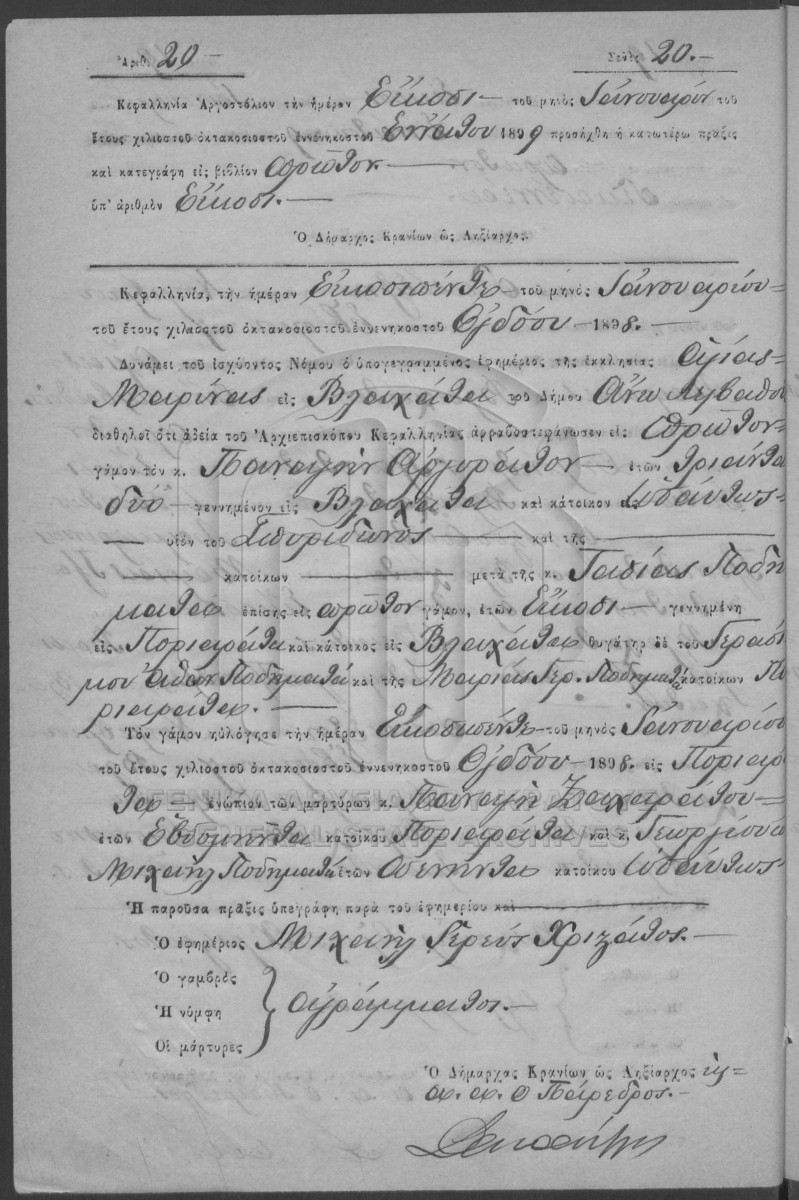 Ἀριθ. 20 — Σελὶς 20.—
Κεφαλληνία Ἀργοστόλιον τὴν ἡμέραν Εἴκοσι — τοῦ μηνὸς Ἰανουαρίου τοῦ
ἔτους χιλιοστοῦ ὀκτακοσιοστοῦ ἐννενηκοστοῦ Ἐννάτου 1899 προσήχθη ἡ κατωτέρω πρᾶξις
καὶ κατεγράφη εἰς βιβλίον Πρῶτον —
ὑπ' ἀριθμὸν Εἴκοσι. —
Ὁ Δήμαρχος Κρανίων ὡς Ληξίαρχος.
Κεφαλληνία, τὴν ἡμέραν Εἰκοσιπέντε — τοῦ μηνὸς Ἰανουαρίου =
τοῦ ἔτους χιλιοστοῦ ὀκτακοσιοστοῦ ἐννενηκοστοῦ Ὀγδόου — 1898. —
Δυνάμει τοῦ ἰσχύοντος Νόμου ὁ ὑπογεγραμμένος ἐφημέριος τῆς ἐκκλησίας Ἁγίας
Μαρίνας εἰς Βλαχάτα τοῦ Δήμου Ἄνω Λειβαθοῦς
διαδηλοῖ ὅτι ἀδείᾳ τοῦ Ἀρχιεπισκόπου Κεφαλληνίας ἀρραβοστεφάνωσεν εἰς πρῶτον
γάμον τὸν κ. Παναγῆν Ἀργυράτον — ἐτῶν τριάντα
δύο — γεννημένον εἰς Βλαχάτα — καὶ κάτοικον εἰς ὡσαύτως
— υἱὸν τοῦ Σπυρίδωνος — καὶ τῆς —
— κατοίκων — μετὰ τῆς κ. Τασίας Ποδη
ματᾶ ἐπίσης εἰς πρῶτον γάμον, ἐτῶν Εἴκοσι — γεννημένη
εἰς Ποριαράτα καὶ κάτοικος εἰς Βλαχάτα θυγάτηρ δὲ τοῦ Γερασί
μου Ποδηματᾶ καὶ τῆς Μαρίας Γερ. Ποδηματᾶ κατοίκων Πο
ριαράτα. —
Τὸν γάμον ηὐλόγησε τὴν ἡμέραν Εἰκοσιπέντε — τοῦ μηνὸς Ἰανουαρίου
τοῦ ἔτους χιλιοστοῦ ὀκτακοσιοστοῦ ἐννενηκοστοῦ Ὀγδόου — 1898. εἰς Ποριαρά
τα — ἐνώπιον τῶν μαρτύρων κ. Παναγῆ Ζαχαράτου —
ἐτῶν Ἑβδομήντα κατοίκου Ποριαράτα καὶ κ. Γεωργίου
Μιχαὴλ Ποδηματᾶ ἐτῶν κατοίκου ὡσαύτως
Ἡ παροῦσα πρᾶξις ὑπεγράφη παρὰ τοῦ ἐφημερίου καὶ —
Ὁ ἐφημέριος Μιχαὴλ Ἱερεὺς Χριζάτος. —
Ὁ γαμβρὸς
Ἡ νύμφη ἀγράμματοι. —
Οἱ μάρτυρες
Ὁ Δήμαρχος Κρανίων ὡς Ληξίαρχος
α. α. ὁ Πάρεδρος. —
ΓΕΝΙΚΑ ΑΡΧΕΙΑ ΤΟΥ ΚΡΑΤΟΥΣ
GENERAL STATE ARCHIVES